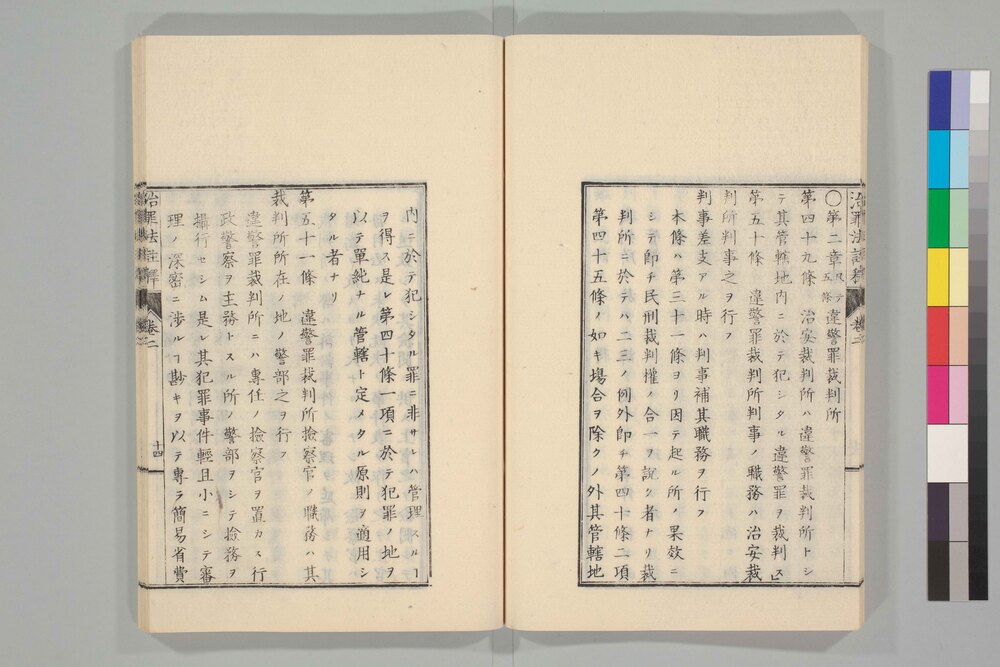 治罪法註釋　卷二
〇第二章　違警罪裁判所
第四十九條　治安裁判所ハ違警罪裁判所トシ
テ其管轄地内ニ於テ犯シタル違警罪ヲ裁判ス
第五十條　違警罪裁判所判事ノ職務ハ治安裁
判所判事之ヲ行フ
判事差支アル時ハ判事補其職務ヲ行フ
本條ハ第三十一條ヨリ因テ起ル所ノ果效ニ
シテ即チ民刑裁判權ノ合一ヲ説ク者ナリ裁
判所ニ於テハ二三ノ例外即チ第四十條二項
第四十五條ノ如キ場合ヲ除クノ外其管轄地
内ニ於テ犯シタル罪ニ非サレハ管理スルヿ
ヲ得ス是レ第四十條一項ニ於テ犯罪ノ地ヲ
以テ單純ナル管轄ト定メタル原則ヲ適用シ
タル者ナリ
第五十一條　違警罪裁判所撿察官ノ職務ハ其
裁判所所在ノ地ノ警部之ヲ行フ
違警罪裁判所ニハ專任ノ撿察官ヲ置カス行
政警察ヲ主務トスル所ノ警部ヲシテ撿務ヲ
攝行セシム是レ其犯罪事件輕且小ニシテ審
理ノ深密ニ涉ルヿ尠キヲ以テ專ラ簡易省費
治罪法註釋　卷二　十四